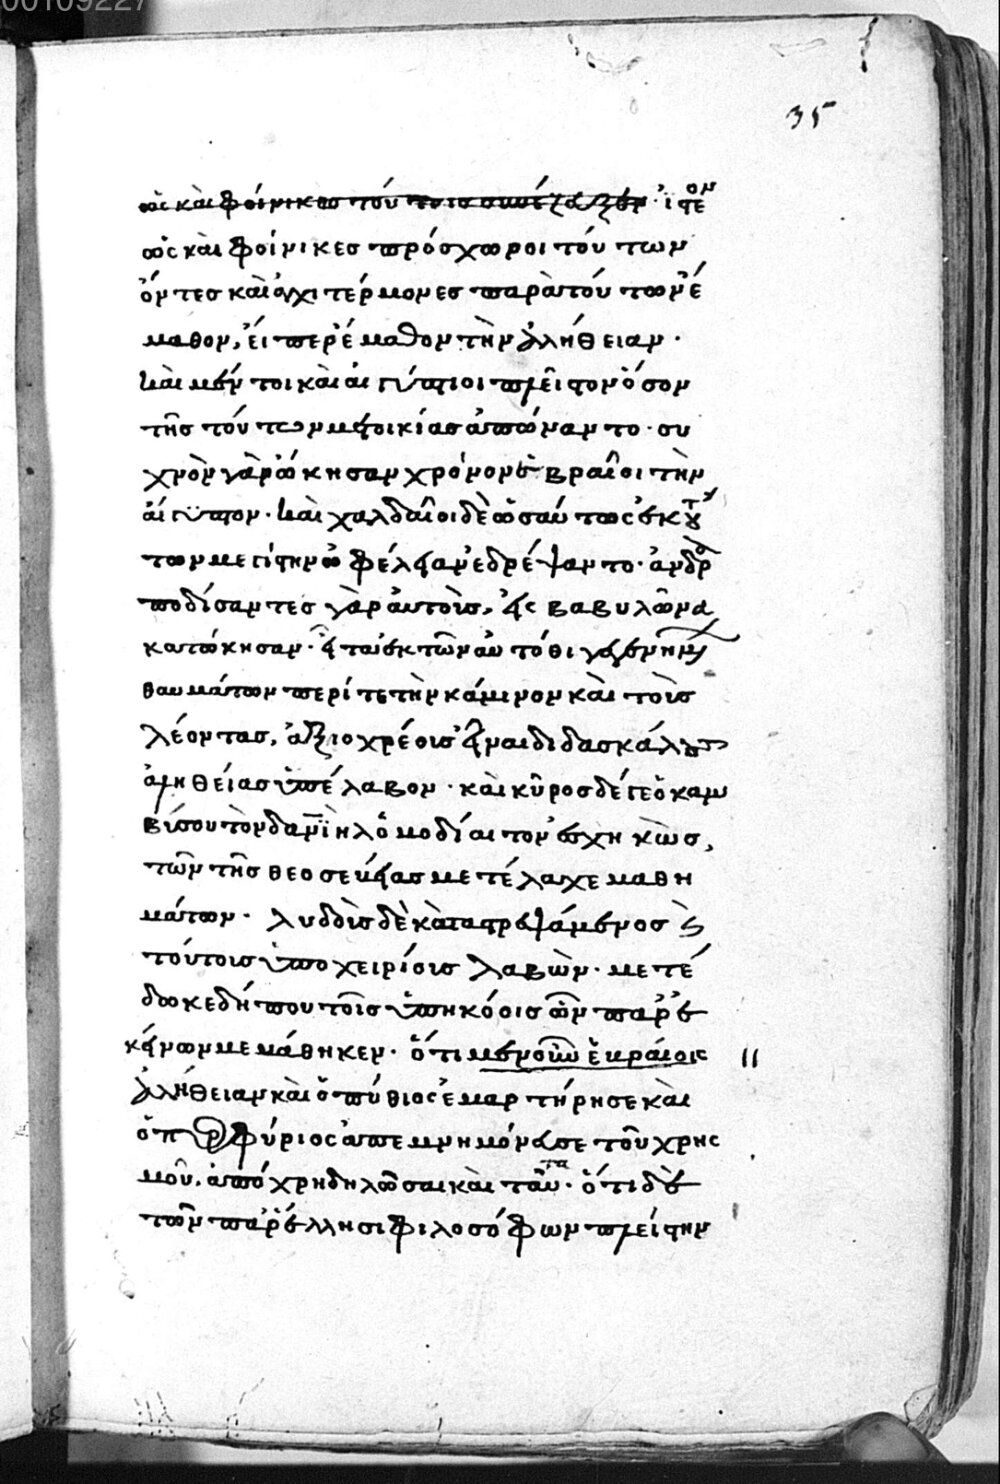 00109227
35
ὡς καὶ φοίνικας τούτοις συνέταξεν· ἰστέον
ὡς καὶ φοίνικες πρόσχωροι τούτων
ὄντες καὶ ἀγχιτέρμονες παρὰ τούτων ἔ
μαθον, εἴπερ ἔμαθον τὴν ἀλήθειαν·
καὶ μέντοι καὶ αἰγύπτιοι πλεῖστον ὅσον
τῆς τούτων μετοικίας ἀπώναντο· συ
χνὸν γὰρ ᾤκησαν χρόνον ἑβραῖοι τὴν
αἴγυπτον· καὶ χαλδαῖοι δὲ ὡσαύτως ἐκ τού
των μεγίστην ὠφέλειαν ἐδρέψαντο· ἀνδρα
ποδίσαντες γὰρ αὐτοὺς, εἰς βαβυλῶνα
κατῴκησαν· εἶτα ἐκ τῶν αὐτόθι γεγενημένων
θαυμάτων περί τε τὴν κάμινον καὶ τοὺς
λέοντας, ἀξιόχρεοις εἶναι διδασκάλους
ἀληθείας ὑπέλαβον· καὶ κῦρος δέ γε ὁ καμ
βύσου τὸν δανιὴλ ὁμοδίαιτον ἐσχηκὼς,
τῶν τῆς θεοσεβείας μετέλαχε μαθη
μάτων· λυδοὺς δὲ καταστρεψάμενος καὶ
τούτους ὑποχειρίους λαβὼν· μετέ
δωκε δήπου τοῖς ὑπηκόοις ὧν παρ' ἐ
κείνων μεμάθηκεν· ὅτι μὲν οὖν ἑβραίοις
ἀλήθειαν καὶ ὁ πύθιος ἐμαρτύρησε καὶ
ὁ πορφύριος ἀπεμνημόνευσε τοῦ χρησ
μοῦ, ἀπόχρη δηλῶσαι καὶ ταῦτα· ὅτι δὲ
τῶν παρ' ἕλλησι φιλοσόφων πλείστην